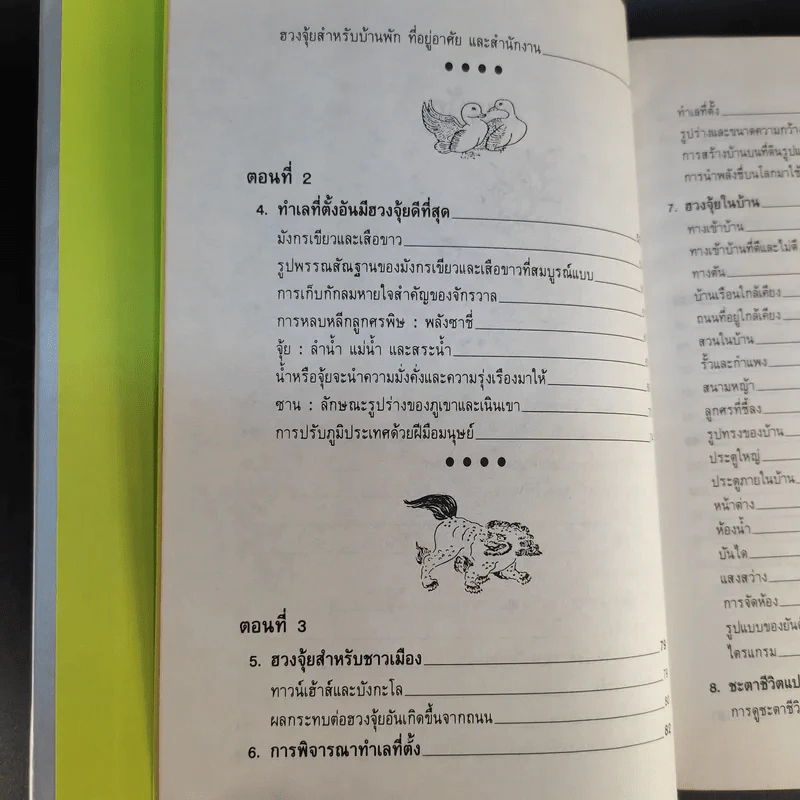 ฮวงจุ้ยสำหรับบ้านพัก ที่อยู่อาศัย และสำนักงาน
ตอนที่ 2
4. ทำเลที่ตั้งอันมีฮวงจุ้ยดีที่สุด
มังกรเขียวและเสือขาว
รูปพรรณสัณฐานของมังกรเขียวและเสือขาวที่สมบูรณ์แบบ
การเก็บกักลมหายใจสำคัญของจักรวาล
การหลบหลีกลูกศรพิษ : พลังซาชี่
จุ้ย : ลำน้ำ แม่น้ำ และสระน้ำ
น้ำหรือจุ้ยจะนำความมั่งคั่งและความรุ่งเรืองมาให้
ซาน : ลักษณะรูปร่างของภูเขาและเนินเขา
การปรับภูมิประเทศด้วยฝีมือมนุษย์
ตอนที่ 3
5. ฮวงจุ้ยสำหรับชาวเมือง 79
ทาวน์เฮ้าส์และบังกะโล 79
ผลกระทบต่อฮวงจุ้ยอันเกิดขึ้นจากถนน 80
6. การพิจารณาทำเลที่ตั้ง 82
ทำเลที่ตั้ง
รูปร่างและขนาดความกว้าง
การสร้างบ้านบนที่ดินรูป
การนำพลังชี่บนโลกมาใช้
7. ฮวงจุ้ยในบ้าน
ทางเข้าบ้าน
ทางเข้าบ้านที่ดีและไม่ดี
ทางตัน
บ้านเรือนใกล้เคียง
ถนนที่อยู่ใกล้เคียง
สวนในบ้าน
รั้วและกำแพง
สนามหญ้า
ลูกศรที่ชี้ลง
รูปทรงของบ้าน
ประตูใหญ่
ประตูภายในบ้าน
หน้าต่าง
ห้องน้ำ
บันได
แสงสว่าง
การจัดห้อง
รูปแบบของยัน
ไตรแกรม
8. ชะตาชีวิตแป
การดูชะตาชีวิ